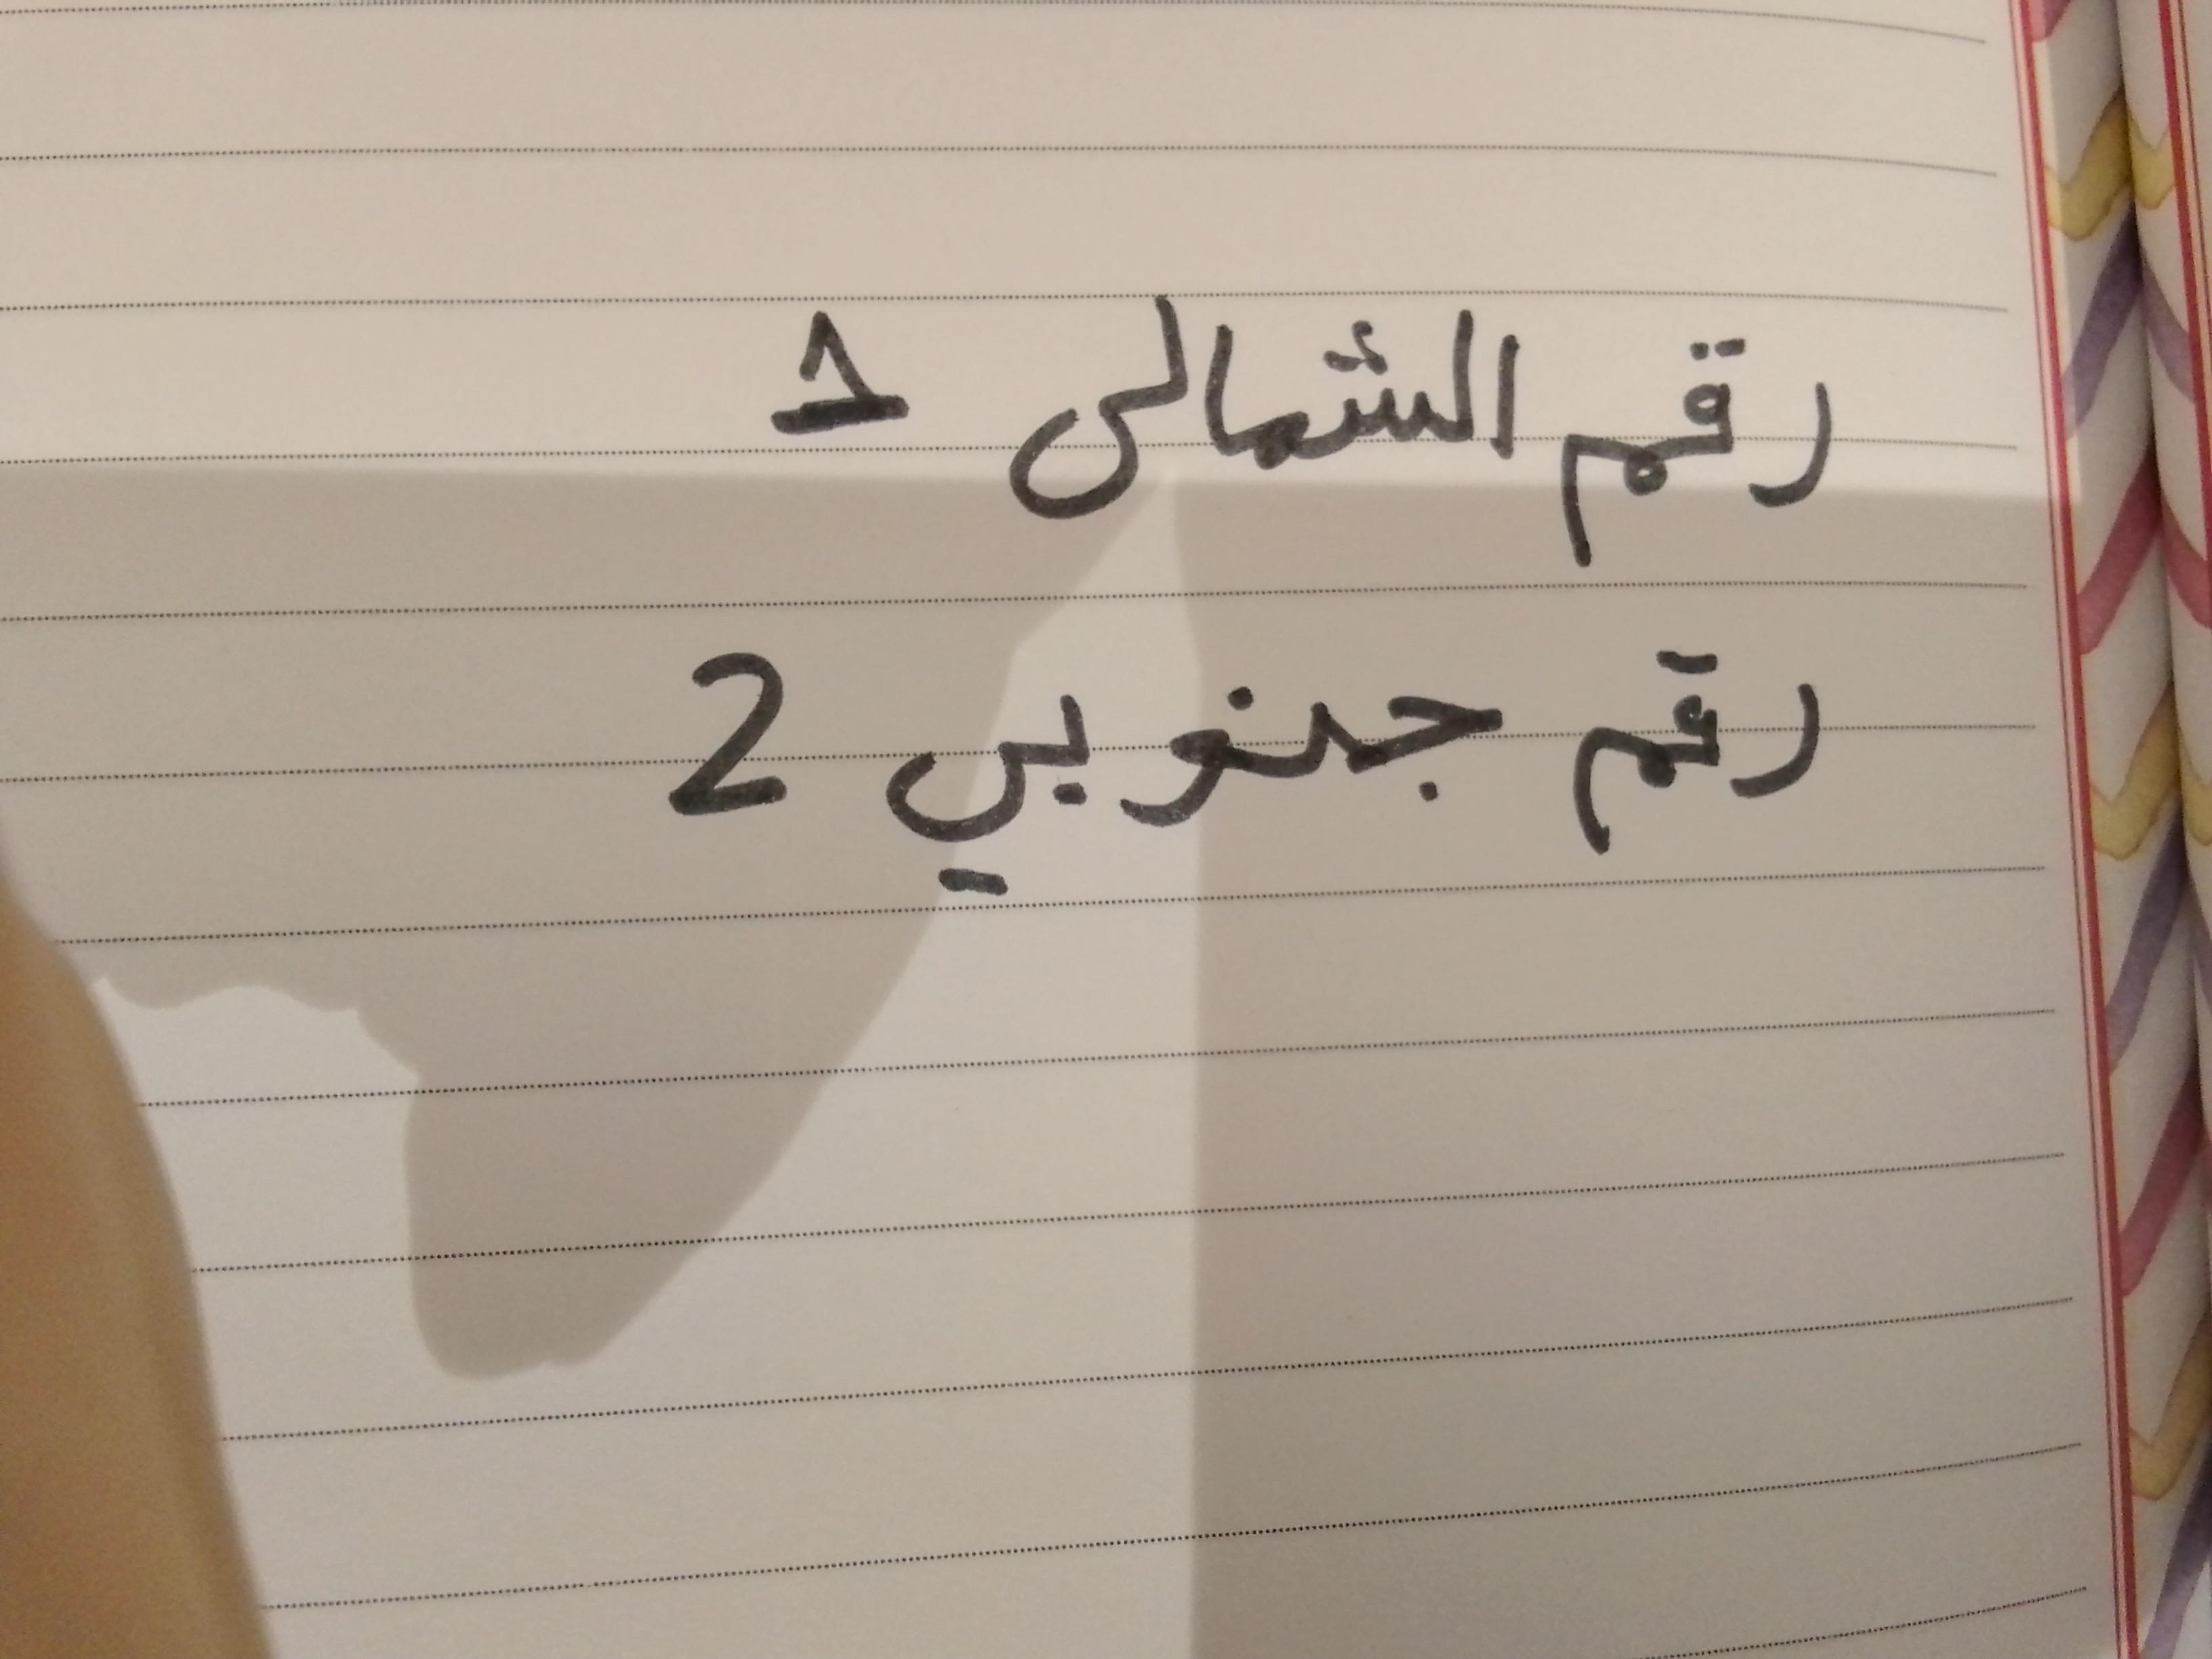 رقم الشمالى 1
رقم جنوبي 2